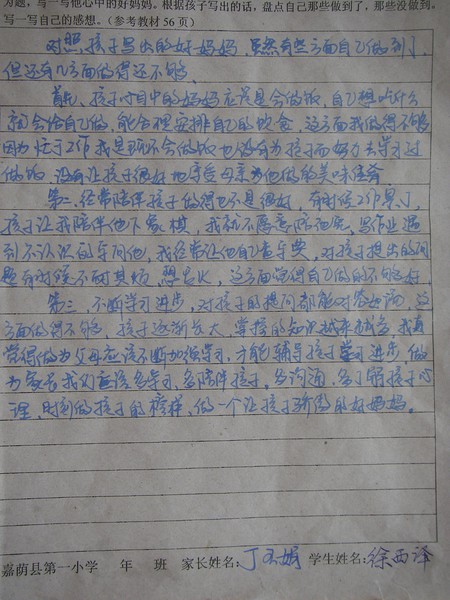 为题，写一写他心中的好妈妈。根据孩子写出的话，盘点自己那些做到了，那些没做到。
写一写自己的感想。（参考教材 56 页）
对照孩子写出的好妈妈，虽然有些方面自己做到了，
但还有几方面做得还不够。
首先，孩子心目中的妈妈应该是会做饭，自己想吃什么
就会给自己做，能合理安排自己的饮食，这方面我做得不够
因为忙于工作我是既不会做饭也没有为孩子而努力去学习过
做饭，没有让孩子很好地享受母亲为他做的美味佳肴
第二，经常陪伴孩子做得也不是很好，有时候工作累了，
孩子让我陪伴他下象棋，我就不愿意陪他玩，写作业遇
到不认识的字问他，我经常让他自己查字典，对孩子提出的问
题有时候不耐其烦，想发火，这方面觉得自己做的不够好，
第三，不断学习进步，对孩子的提问都能对答如流，这
方面做得不够，孩子逐渐长大，掌握的知识越来越多，我真
觉得做为父母应该不断加强学习，才能辅导孩子学习进步，做
为家长我们应该多学习，多陪伴孩子，多沟通，多了解孩子心
理，时刻做孩子的榜样，做一个让孩子骄傲的好妈妈。
嘉荫县第一小学 年 班 家长姓名：丁 娟 学生姓名：徐西泽